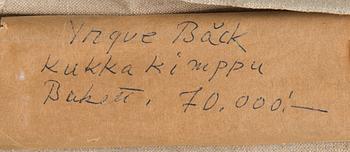 Yngve Bäck
Kukka kimppu
Bukett, 70.000:—